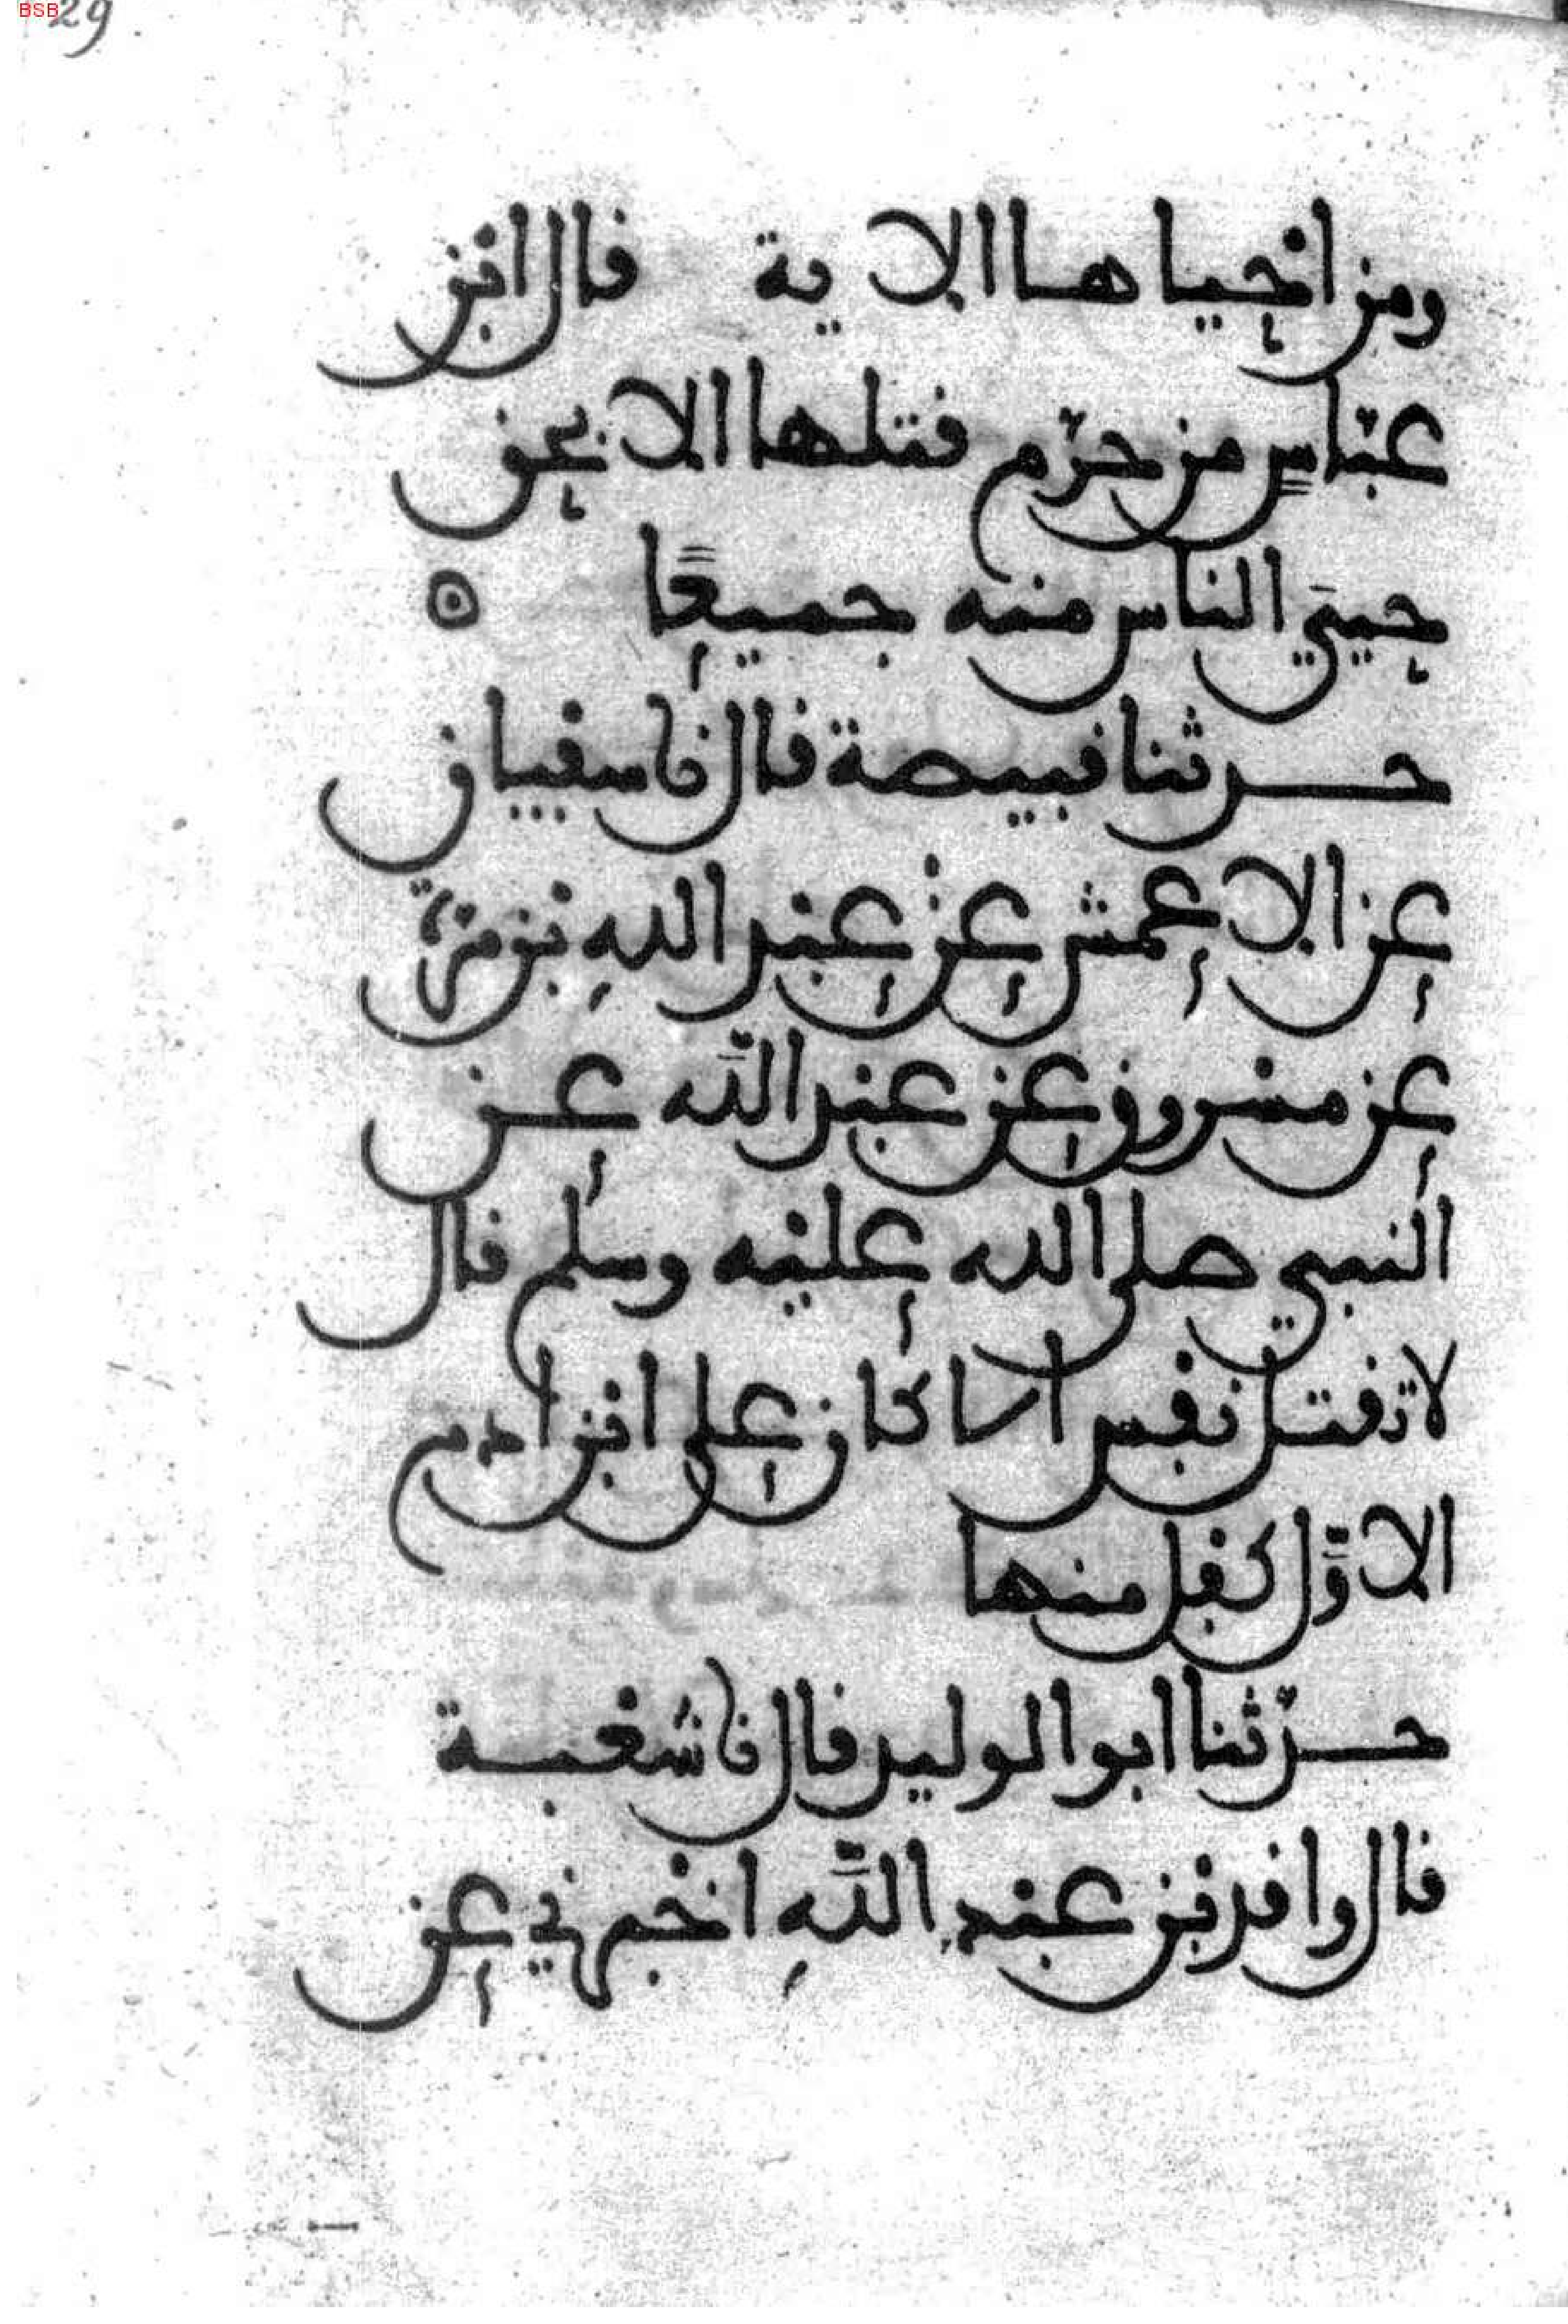 BSB 29
ومن احياها الاية قال ابن
عبّاسٍ من حرّم قتلها الا بحق
حيي الناس منه جميعًا
حدثنا قبيصة قال نا سفيان
عن الاعمش عن عبد اللهِ بن مرة
عن مسروق عن عبد اللّه عن
النبي صلى الله عليه وسلم قال
لا تقتل نفس الا كان على ابن ادم
الاوّل كفل منها
حدّثنا ابو الوليد قال نا شعبة
قال واقد بن عبد اللّهِ اخبرني عن